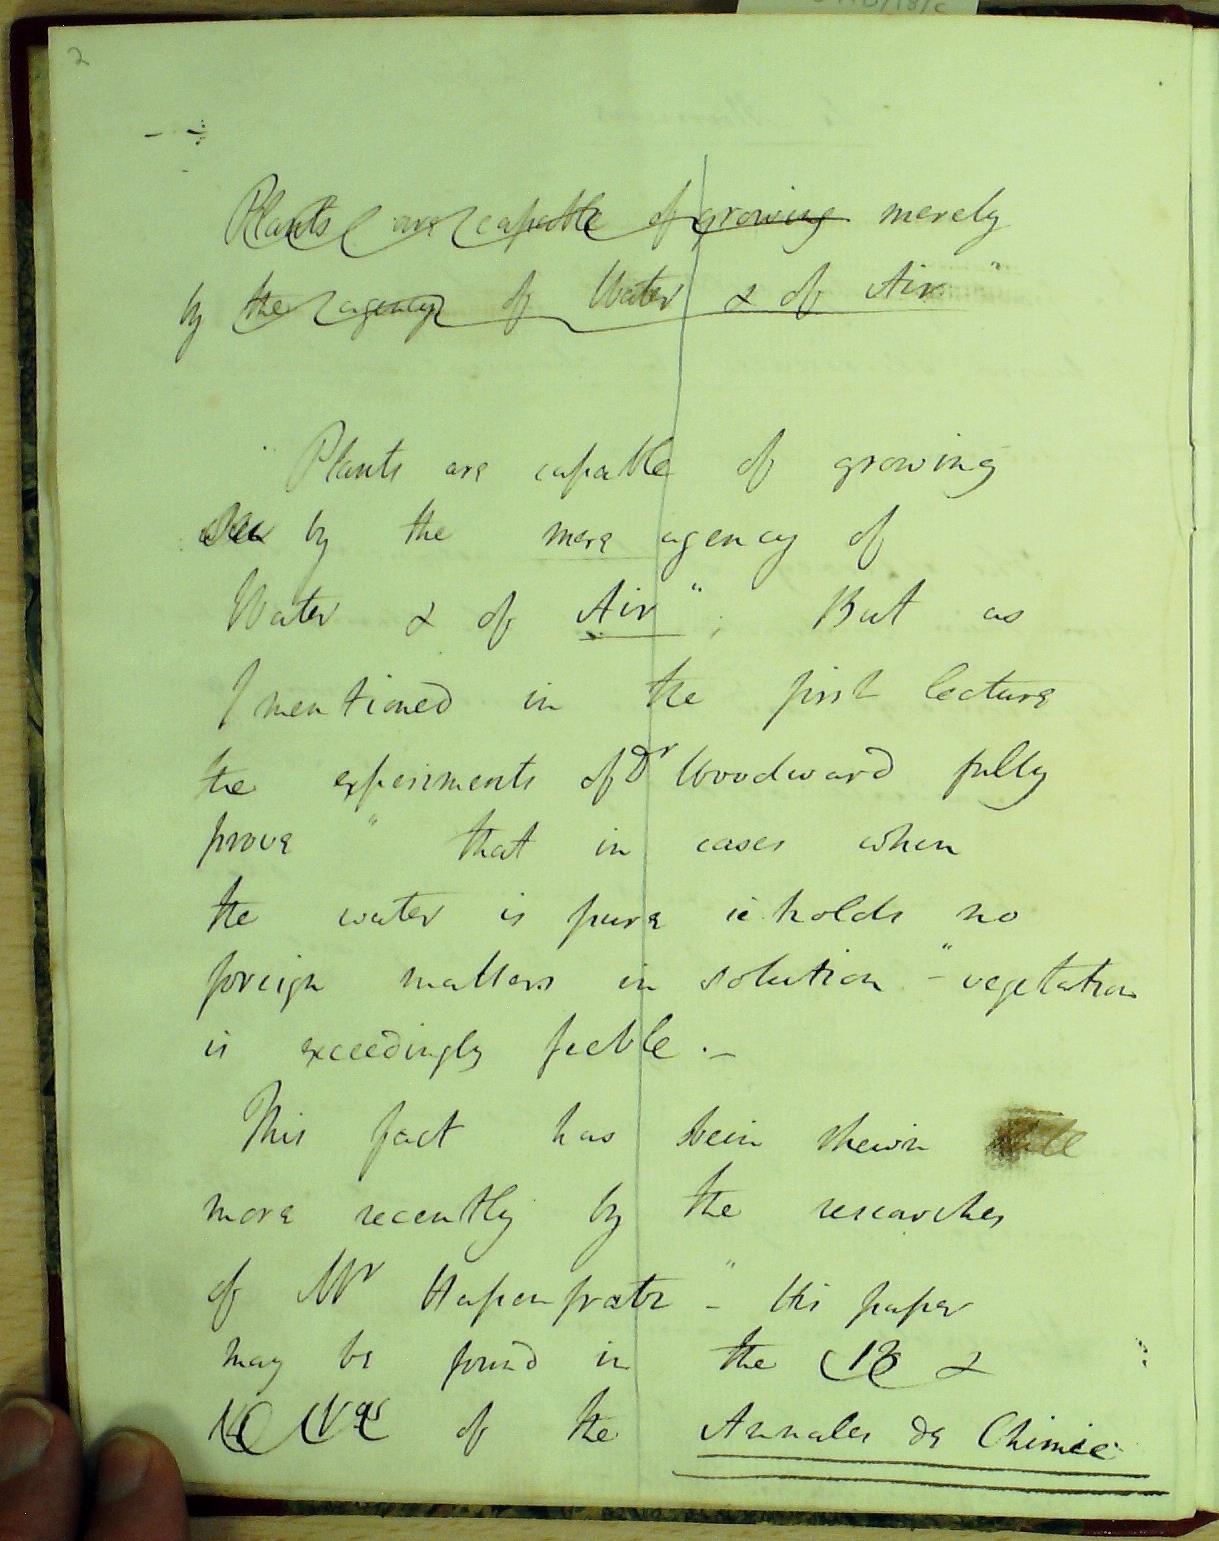 2
Plants are capable of growing merely
by the agency of Water & of Air"
Plants are capable of growing
by the mere agency of
Water & of Air"; But as
I mentioned in the first lecture
the experiments of Dr Woodward fully
prove " that in cases when
the water is pure ie holds no
foreign matters in solution -" vegetation
is exceedingly feeble . –
This fact has been shewn
more recently by the researches
of Mr Hapenfratz -" His paper
may be found in the 13 &
14 of the Annales de Chimie